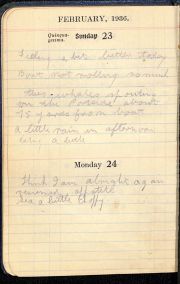 FEBRUARY, 1936.
Quinqua-
gesima. Sunday 23
Feeling a bit better today
Boat not rolling so much
the whales spouting
on the about
75 yards from boat
a little rain in afternoon
a little
Monday 24
Think I am alright again
Sea a little choppy